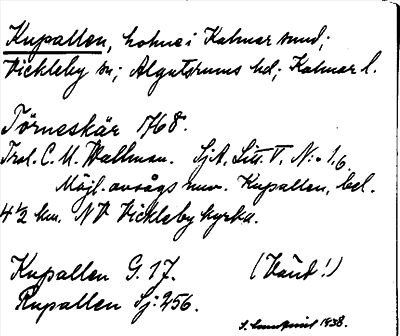 Kupallen, holme i Kalmar sund;
Vickleby sn; Algutsrums hd; Kalmar l.
Törneskär 1768.
Trol. C. U. Wallman. Sjk. Litt. V. N:o 16
Möjl. avsågs nuv. Kupallen, bel.
4 1/2 km. NV Vickleby kyrka.
Kupallen G. 17. (Vänd!)
Kupallen Sj: 256.
1938.